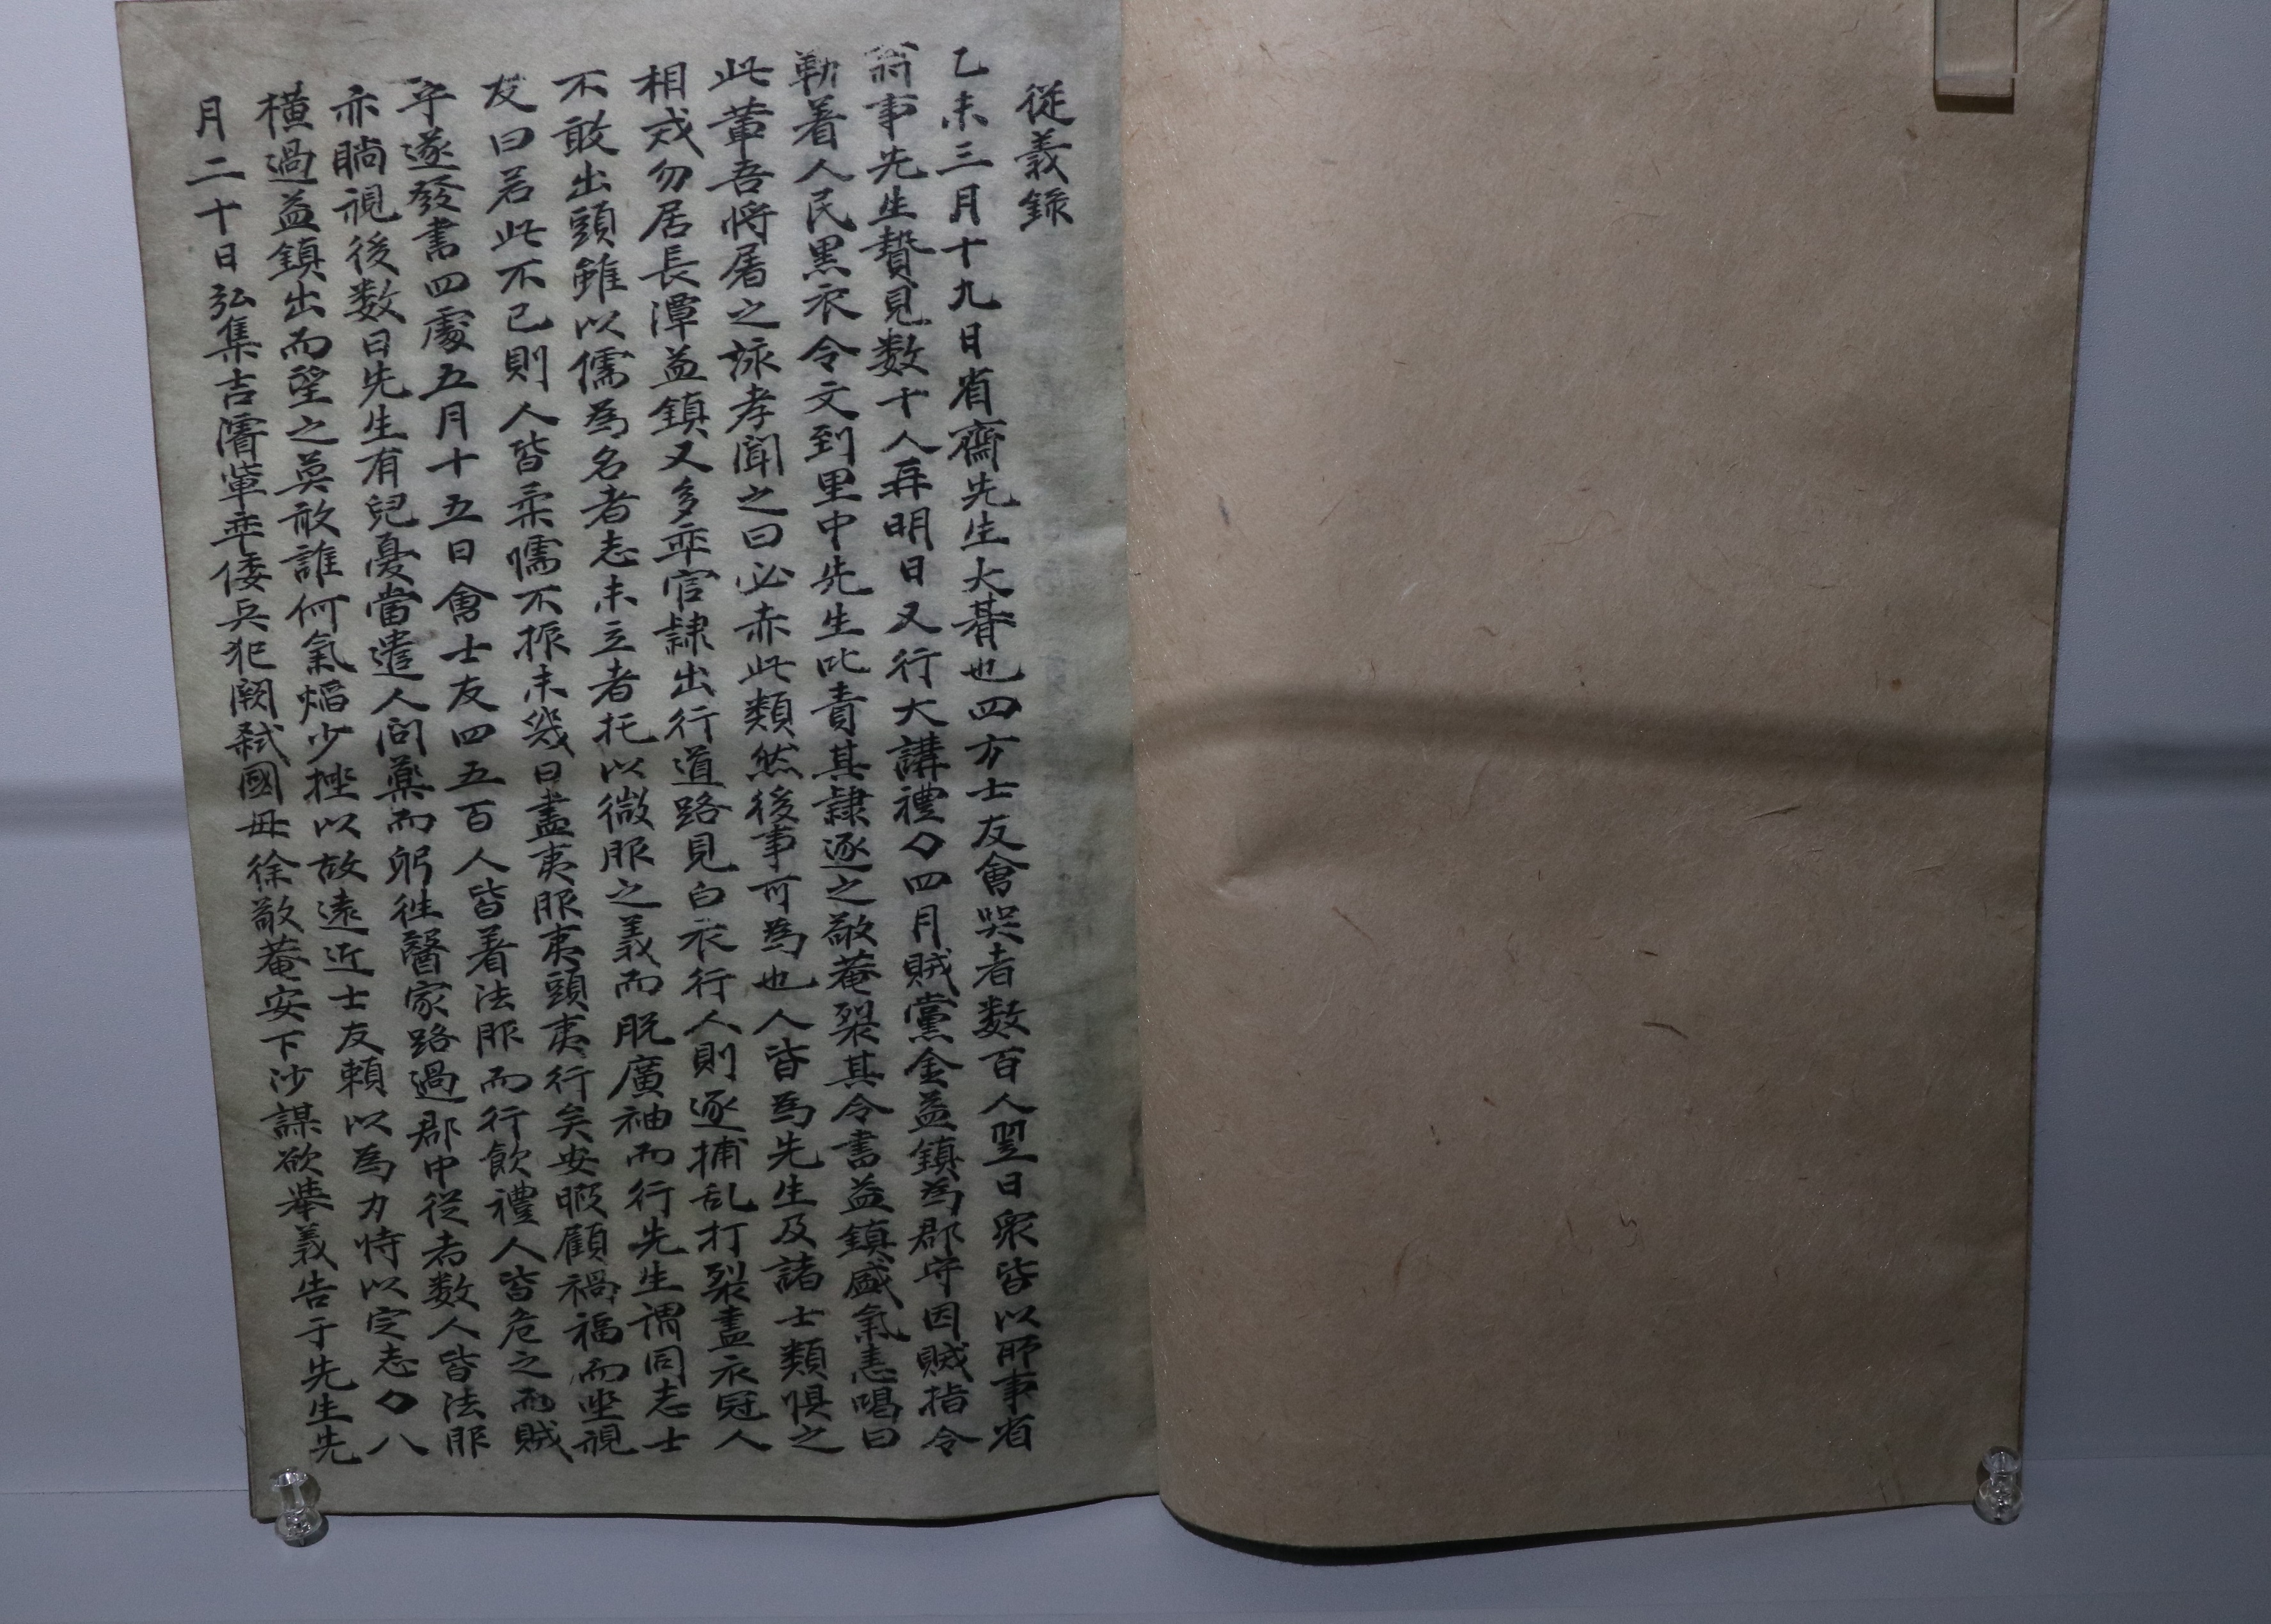 從義錄
乙未三月十九日省齋先生大朞也四方士友會哭者数百人翌日衆皆以師事省
翁事先生贄見数十人再明日又行大講禮◇四月賊黨金益鎮為郡守因賊指令
勒着人民黑衣令文到里中先生叱責其隷逐之敬菴裂其令書益鎮盛氣恚喝曰
此輩吾將屠之泳孝聞之曰必赤此類然後事可為也人皆為先生及諸士類惧之
相戒勿居長潭益鎮又多率官隷出行道路見白衣行人則逐捕乱打裂盡衣冠人
不敢出頭雖以儒為名者志未立者托以微服之義而脱廣袖而行先生謂同志士
友曰若此不已則人皆柔懦不振未幾日盡夷服夷頭夷行矣安暇顧禍福而坐視
乎遂發書四處五月十五日會士友四五百人皆着法服而行飮禮人皆危之而賊
亦瞗視後数日先生有兒憂當遣人問藥而躬徃醫家路過郡中從者数人皆法服
橫過益鎮出而望之莫敢誰何氣焰少挫以故遠近士友賴以為力恃以定志◇八
月二十日弘集吉濬輩率倭兵犯闕弑國母徐敬菴安下沙謀欲擧義告于先生先